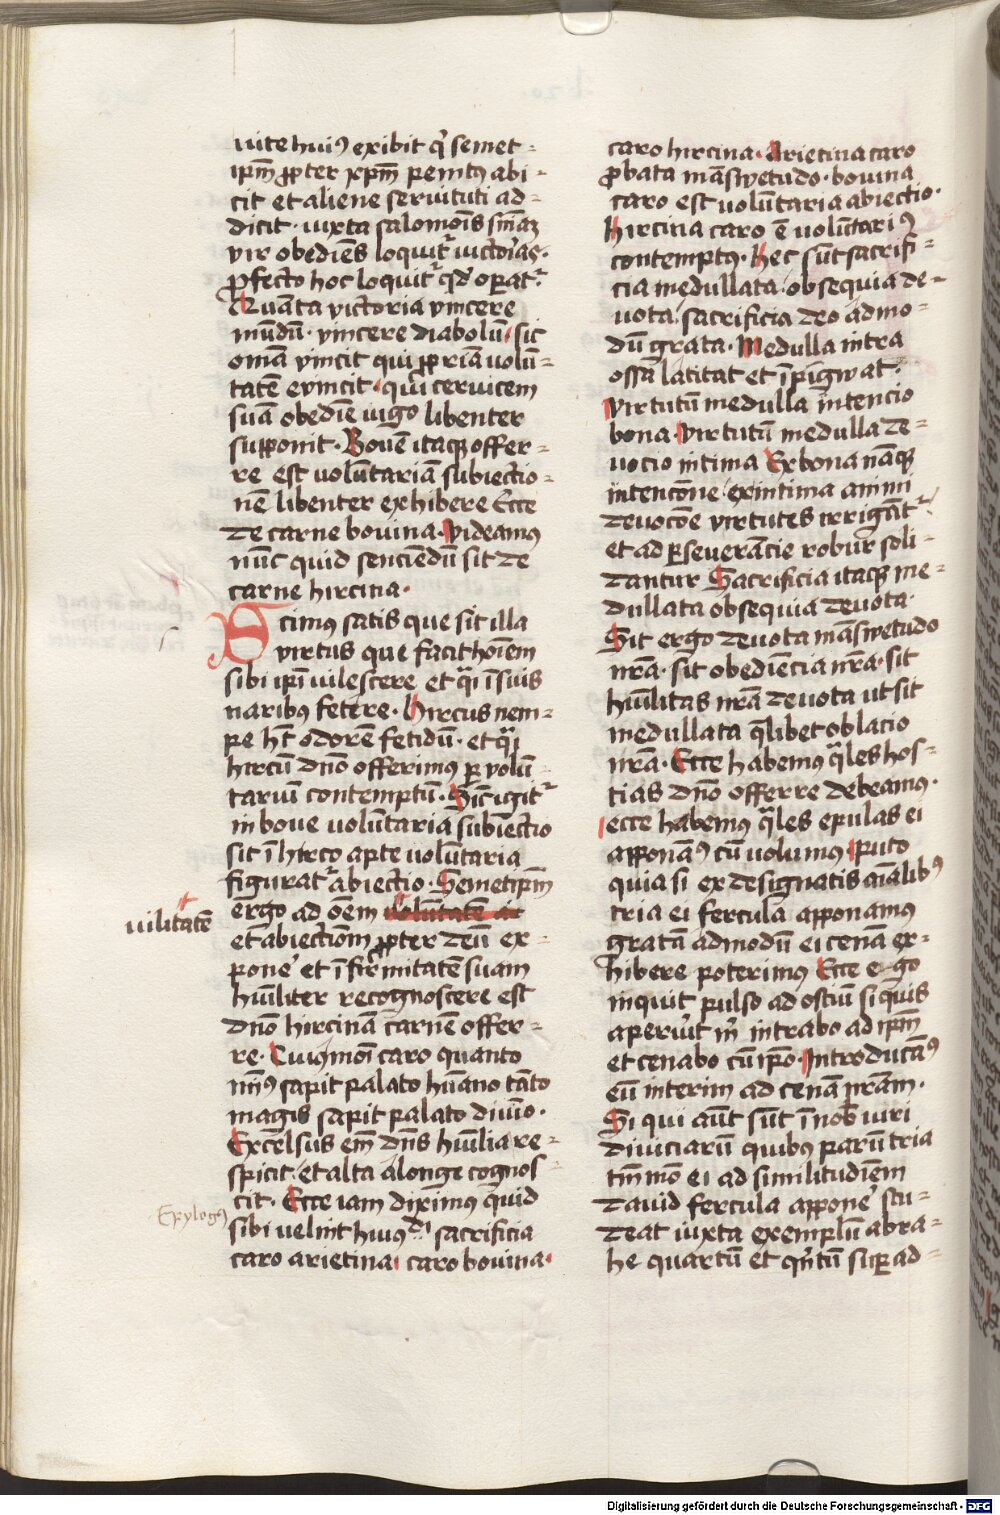 uite hui⁹ exibit q̇ semet-
ip̄m ꝓpter xp̄m penit⁹ abi-
cit et aliene seruituti ad-
dicit · iuxta salomōis sn̄iaꝫ
vir obediēs loquit̉ uictoīas·
ꝓfecto hoc loquit̉ qd̓ oꝑat̉
Quanta victoria vincere
mūdū · vincere diabolū sic
omīa vincit qui ꝓpriā uolū-
tatē evincit · qui ceruicem
suā obediē iugo libenter
supponit · Bouē itaqꝫ offer-
re est uolūtariā subiectio-
nē libenter exhibere Ecce
de carne bouina · videam⁹
nūc quid senciēdū sit de
carne hircina ·
Dicimus satis que sit illa
virtus que facit hoīem
sibi ip̄i vilescere et q̄i ī suis
naribus fetere · Hircus nem-
pe hȝ odorē fetidū · et q̄i
hircū dn̄o offerimus ꝑ volū-
tariū contemptū · Sic̄ igit̉
in boue uolūtaria subiectio
sit ī hirco aperte uolūtaria
figurat̉ abiectio · Semetip̄m
ergo ad oēm uoluntatē ac
uilitatē
et abiectiōm ꝓpter deū ex-
pone᷑ et ī firmitatē suam
hūiliter recognoscere est
dn̄o hircinā carnē offer-
re · Cui⁹mōi caro quanto
min⁹ sapit palato hūano tāto
magis sapit palato diuīo ·
Excelsus em̄ dn̄s hūilia re-
spicit · et alta alonge cognos
cit · Ecce iam diximus quid
Epylog⁹
sibi uelint huiusdi sacrificia
caro arietina caro bouina
caro hircina · Arietina caro
ꝓbata māswetudo · bouina
caro est uolūtaria abiectio ·
Hircina caro ē volūtari⁹
contempt⁹ · Hec sūt sacrifi-
cia medullata obsequia de-
uota sacrificia deo admo-
dū grata · Medulla intra
ossa latitat et īpīgwat·
virtutū medulla intencio
bona · virtutū medulla de-
uocio intima Ex bona nāqꝫ
intencōne ex intima animi
deuocōe virtutes irrigāt̉
et ad ꝑseuerācie robur soli-
dantur Sacrificia itaqꝫ me-
dullata obsequia deuota ·
Sit ergo deuota māswetudo
nr̄a · sit obediēcia nr̄a · sit
hūilitas nr̄a deuota ut sit
medullata q̄libet oblacio
nr̄a · Ecce habemus q̄les hos-
tias dn̄o offerre debeamus ·
ecce habemus q̄les epulas ei
apponam⁹ cū uolumus · Puto
quia si ex designatis aīalib⁹
tria ei fercula apponamus
gratā admodū ei cenā ex-
hibere poterimus Ecce ego
inquit pulso ad ostiū si quis
aperūit m̄ intrabo ad ip̄m
et cenabo cū ip̄o · Introducam⁹
eū interim ad cenā nr̄am ·
Si qui aūt sūt ī nob̄ uiri
diuiciarū quibus parū tria
tm̄mō ei ad similitudīem
dauid fercula appone᷑ stu-
deat iuxta exemplū abra-
he quartū et qn̄tū suꝑad-
Digitalisierung gefördert durch die Deutsche Forschungsgemeinschaft - DFG